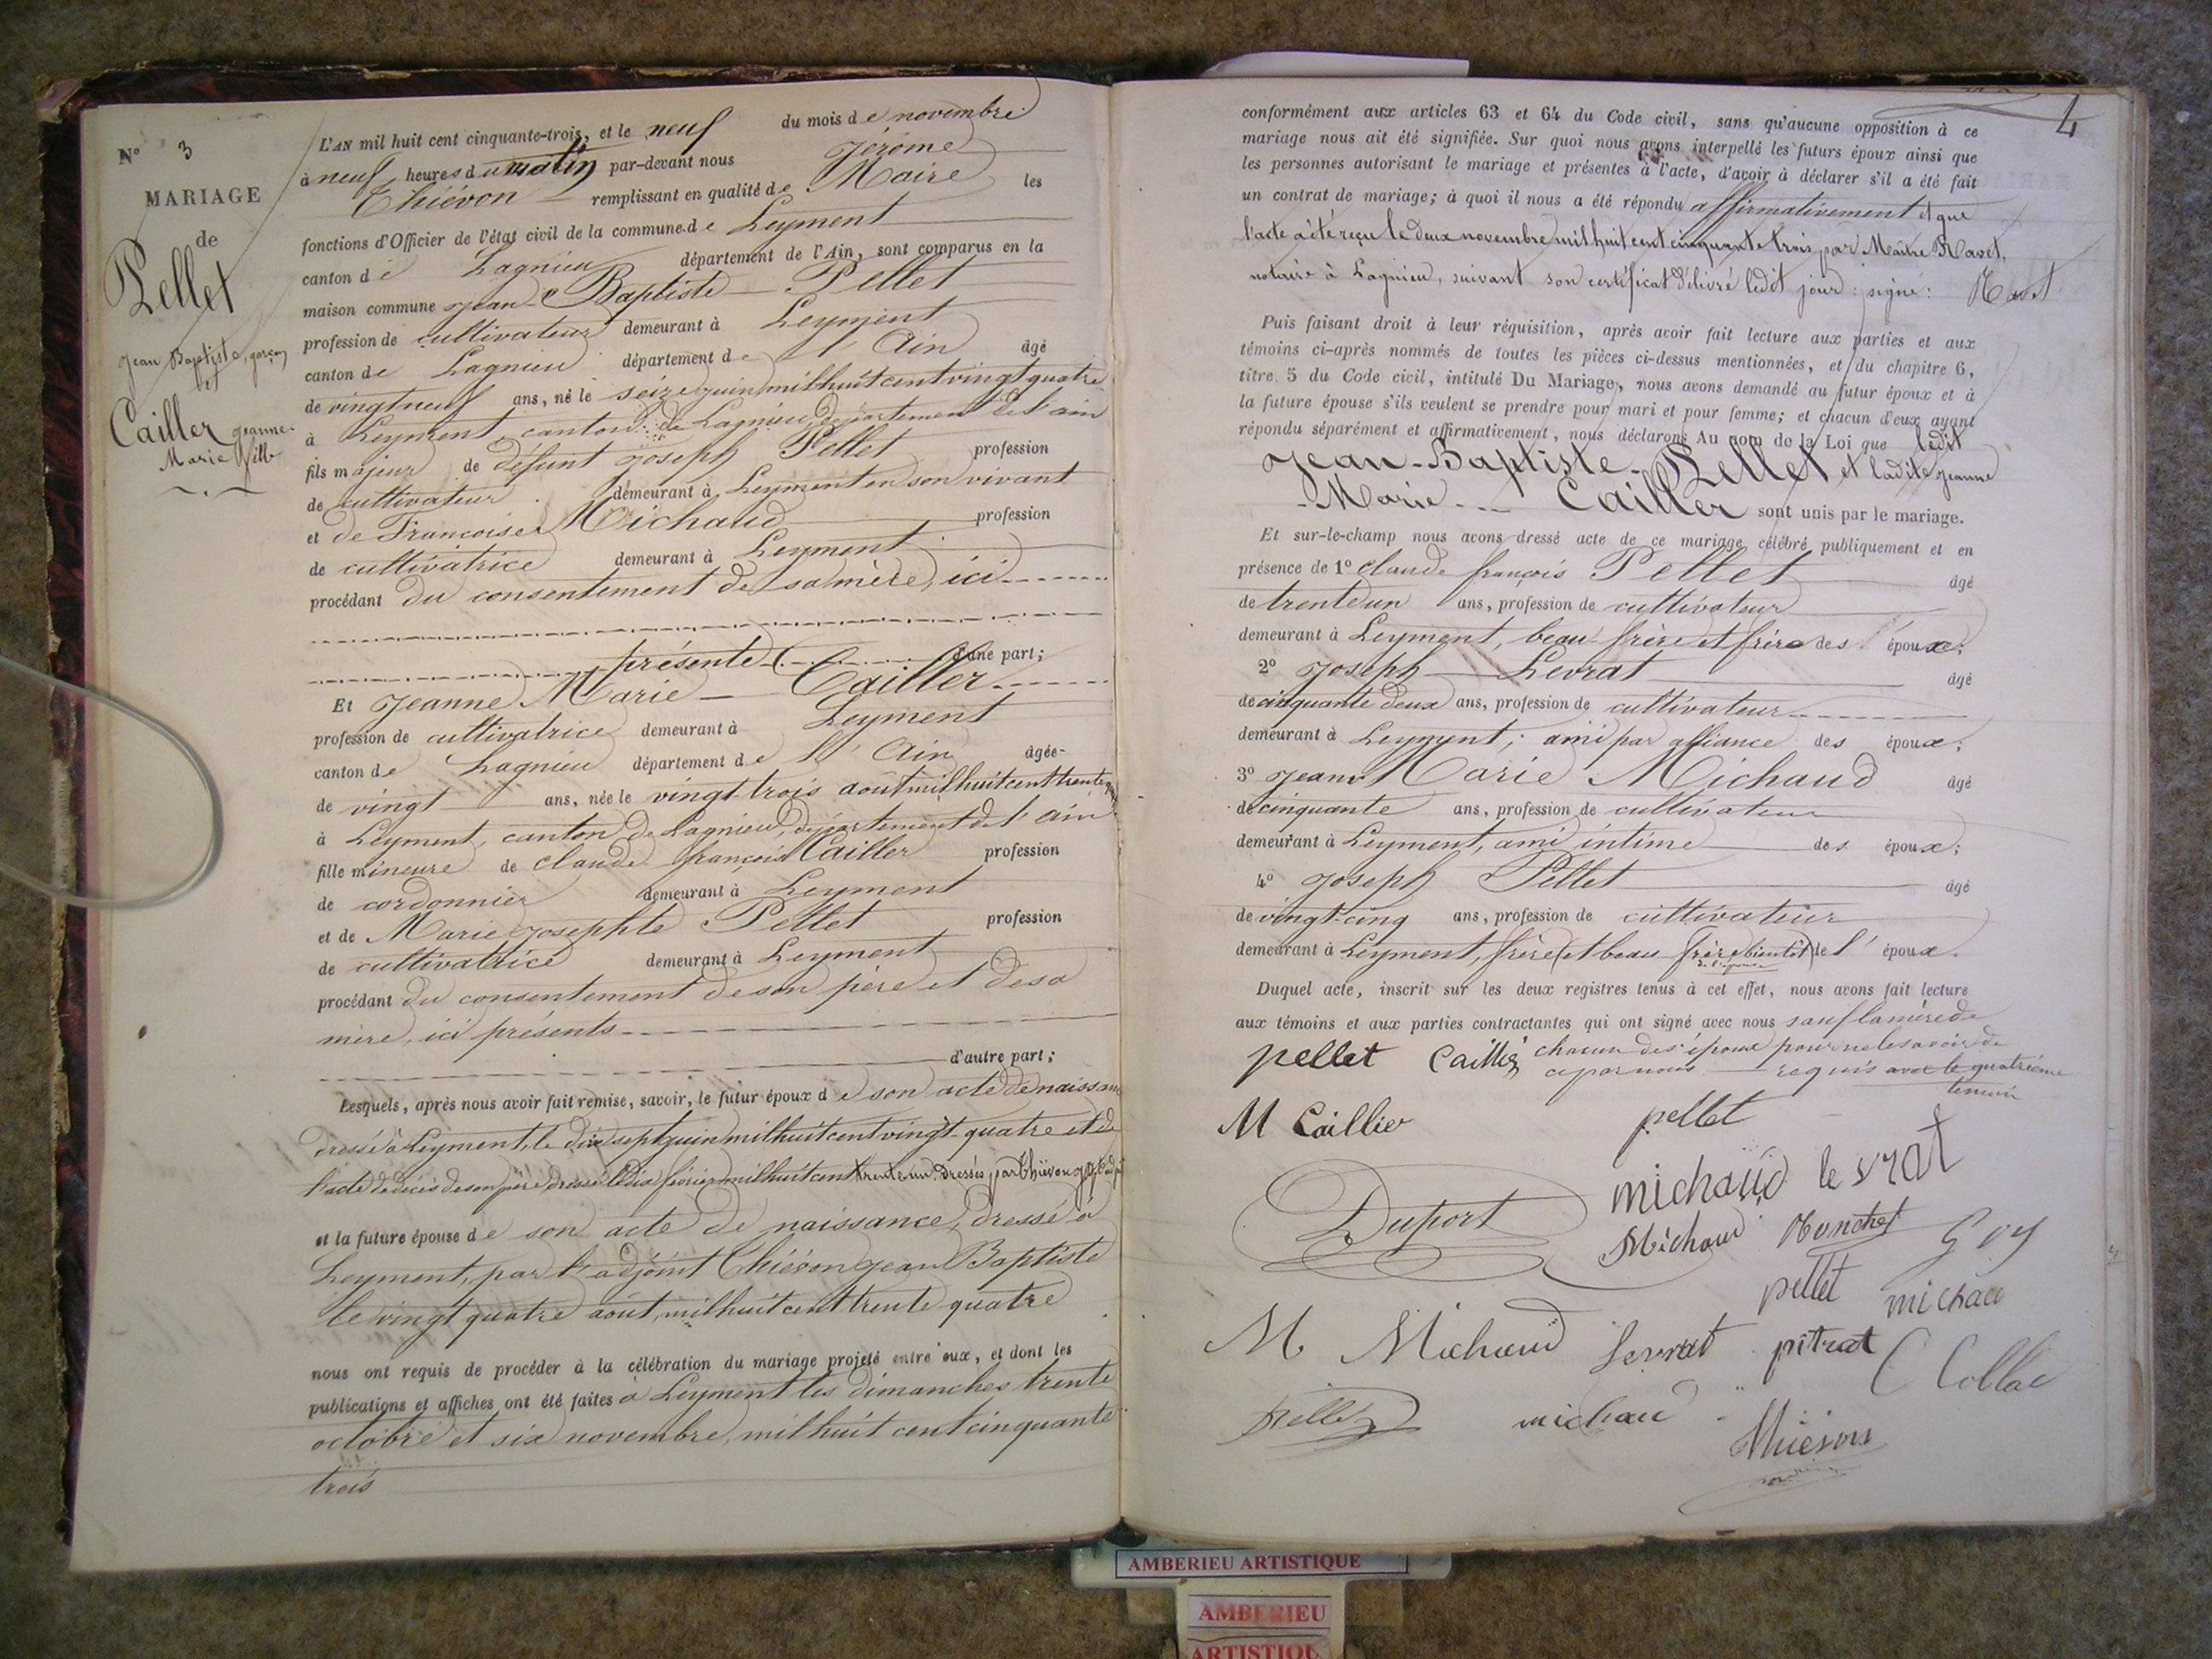 N° 3
MARIAGE
de
Pellet
Jean Baptiste, garçon
et
Cailler Jeanne-
Marie fille
L'AN mil huit cent cinquante-trois, et le neuf du mois de novembre
à neuf heures du matin par-devant nous Jérôme
Thiévon remplissant en qualité de Maire les
fonctions d'Officier de l'état civil de la commune de Leyment
canton de Lagnieu département de l'Ain, sont comparus en la
maison commune Jean Baptiste Pellet
profession de cultivateur demeurant à Leyment
canton de Lagnieu département de l'Ain âgé
de vingt neuf ans, né le seize juin mil huit cent vingt quatre
à Leyment, canton de Lagnieu, département de l'ain
fils majeur de défunt Joseph Pellet profession
de cultivateur demeurant à Leyment en son vivant
et de Françoise Michaud profession
de cultivatrice demeurant à Leyment
procédant du consentement de sa mère, ici
présente d'une part;
Et Jeanne Marie Cailler
profession de cultivatrice demeurant à Leyment
canton de Lagnieu département de l'Ain âgée
de vingt ans, née le vingt-trois août mil huit cent trente
à Leyment, canton de Lagnieu, département de l'ain
fille mineure de Claude françois Cailler profession
de cordonnier demeurant à Leyment
et de Marie Josephte Pellet profession
de cultivatrice demeurant à Leyment
procédant du consentement de son père et de sa
mère, ici présents
d'autre part;
Lesquels, après nous avoir fait remise, savoir, le futur époux de son acte de naissance
dressé à Leyment, le dix sept juin mil huit cent vingt-quatre et de
l'acte de décès de son père dressé le dix février mil huit cent trente un dressés par Thiévon
et la future épouse de son acte de naissance, dressé à
Leyment, par l'adjoint Thiévon Jean Baptiste
le vingt quatre août, mil huit cent trente quatre
nous ont requis de procéder à la célébration du mariage projeté entre eux, et dont les
publications et affiches ont été faites à Leyment les dimanches trente
octobre et six novembre, mil huit cent cinquante
trois
4
conformément aux articles 63 et 64 du Code civil, sans qu'aucune opposition à ce
mariage nous ait été signifiée. Sur quoi nous avons interpellé les futurs époux ainsi que
les personnes autorisant le mariage et présentes à l'acte, d'avoir à déclarer s'il a été fait
un contrat de mariage; à quoi il nous a été répondu affirmativement et que
l'acte a été reçu le deux novembre mil huit cent cinquante trois par Maître Ravet,
notaire à Lagnieu, suivant son certificat délivré ledit jour: signé: Ravet
Puis faisant droit à leur réquisition, après avoir fait lecture aux parties et aux
témoins ci-après nommés de toutes les pièces ci-dessus mentionnées, et du chapitre 6,
titre 5 du Code civil, intitulé Du Mariage, nous avons demandé au futur époux et à
la future épouse s'ils veulent se prendre pour mari et pour femme; et chacun d'eux ayant
répondu séparément et affirmativement, nous déclarons Au nom de la Loi que ledit
Jean-Baptiste-Pellet et ladite Jeanne
-Marie-- Cailler sont unis par le mariage.
Et sur-le-champ nous avons dressé acte de ce mariage célébré publiquement et en
présence de 1° Claude françois Pellet âgé
de trente un ans, profession de cultivateur
demeurant à Leyment, beau frère et frère des époux;
2° Joseph Levrat âgé
de cinquante deux ans, profession de cultivateur
demeurant à Leyment; ami par alliance des époux;
3° Jean Marie Michaud âgé
de cinquante ans, profession de cultivateur
demeurant à Leyment, ami intime des époux;
4° Joseph Pellet âgé
de vingt-cinq ans, profession de cultivateur
demeurant à Leyment, frère (et beau frère bientôt) de l'époux.
de l'épouse
Duquel acte, inscrit sur les deux registres tenus à cet effet, nous avons fait lecture
aux témoins et aux parties contractantes qui ont signé avec nous sauf la mère de
chacun des époux pour ne le savoir de
ce par nous requis avec le quatrième
témoin
pellet Caillier
M Caillier pellet
michaud levrat
Duport
Michaud Monchet Goy
pellet michau
M Michaud Levrat pitrat C Collac
Pellet michau
Thiévon
AMBERIEU ARTISTIQUE
AMBERIEU
ARTISTIQU